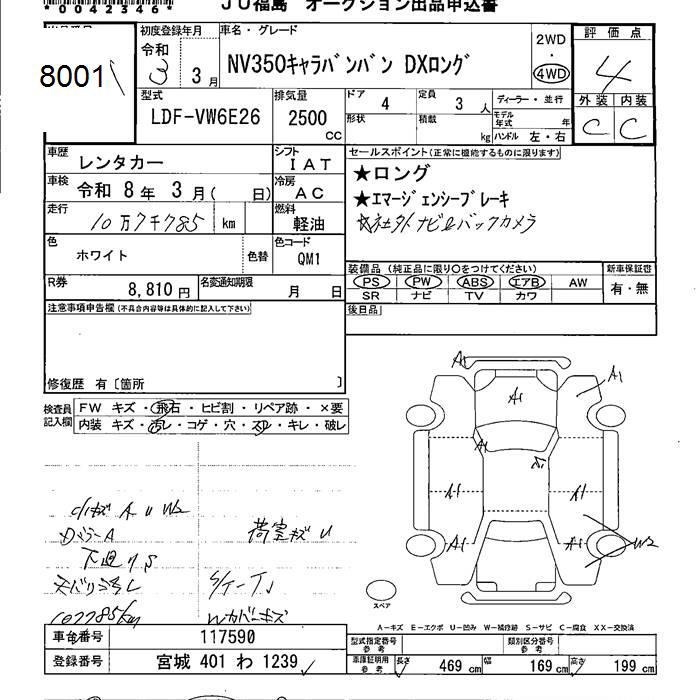 *0042346*
JU福島 オークション出品申込書
8001
初度登録年月
令和 3 3月
車名・グレード
NV350キャラバンバン DXロング
2WD
・
4WD
評価点
4
型式
LDF-VW6E26
排気量
2500
cc
ドア
4
定員
3人
形状
積載
kg
ディーラー・並行
モデル年式 年
ハンドル 左・右
外装 内装
C C
車歴
レンタカー
シフト
IAT
車検
令和 8年 3月( 日)
冷房
AC
走行
10万7千785 km
燃料
軽油
色
ホワイト
色替
色コード
QM1
R券
8,810円
名変通知期限
月 日
セールスポイント(正常に機能するものに限ります)
★ロング
★エマージェンシーブレーキ
★社外ナビ&バックカメラ
装備品 (純正品に限り○をつけてください)
PS PW ABS エアB AW
SR ナビ TV カワ
新車保証書
有・無
後日品
注意事項申告欄(不具合内容等は具体的に記入して下さい)
修復歴 有〔箇所 〕
検査員記入欄
FW キズ・飛石・ヒビ割・リペア跡・×要
内装 キズ・汚レ・コゲ・穴・スレ・キレ・破レ
小キズ A U W2
荷室キズ U
下廻りS
天バリ汚レ
107785km
Wカバーキズ
A A1 A1
A1
A1 A1
A1 A1 W2
スペア
A-キズ E-エクボ U-凹み W-補修跡 S-サビ C-腐食 XX-交換済
車台番号 117590
登録番号 宮城 401 わ 1239
型式指定番号
参考
類別区分番号
参考
車庫証明用
参考
長さ 469 cm 幅 169 cm 高さ 199 cm